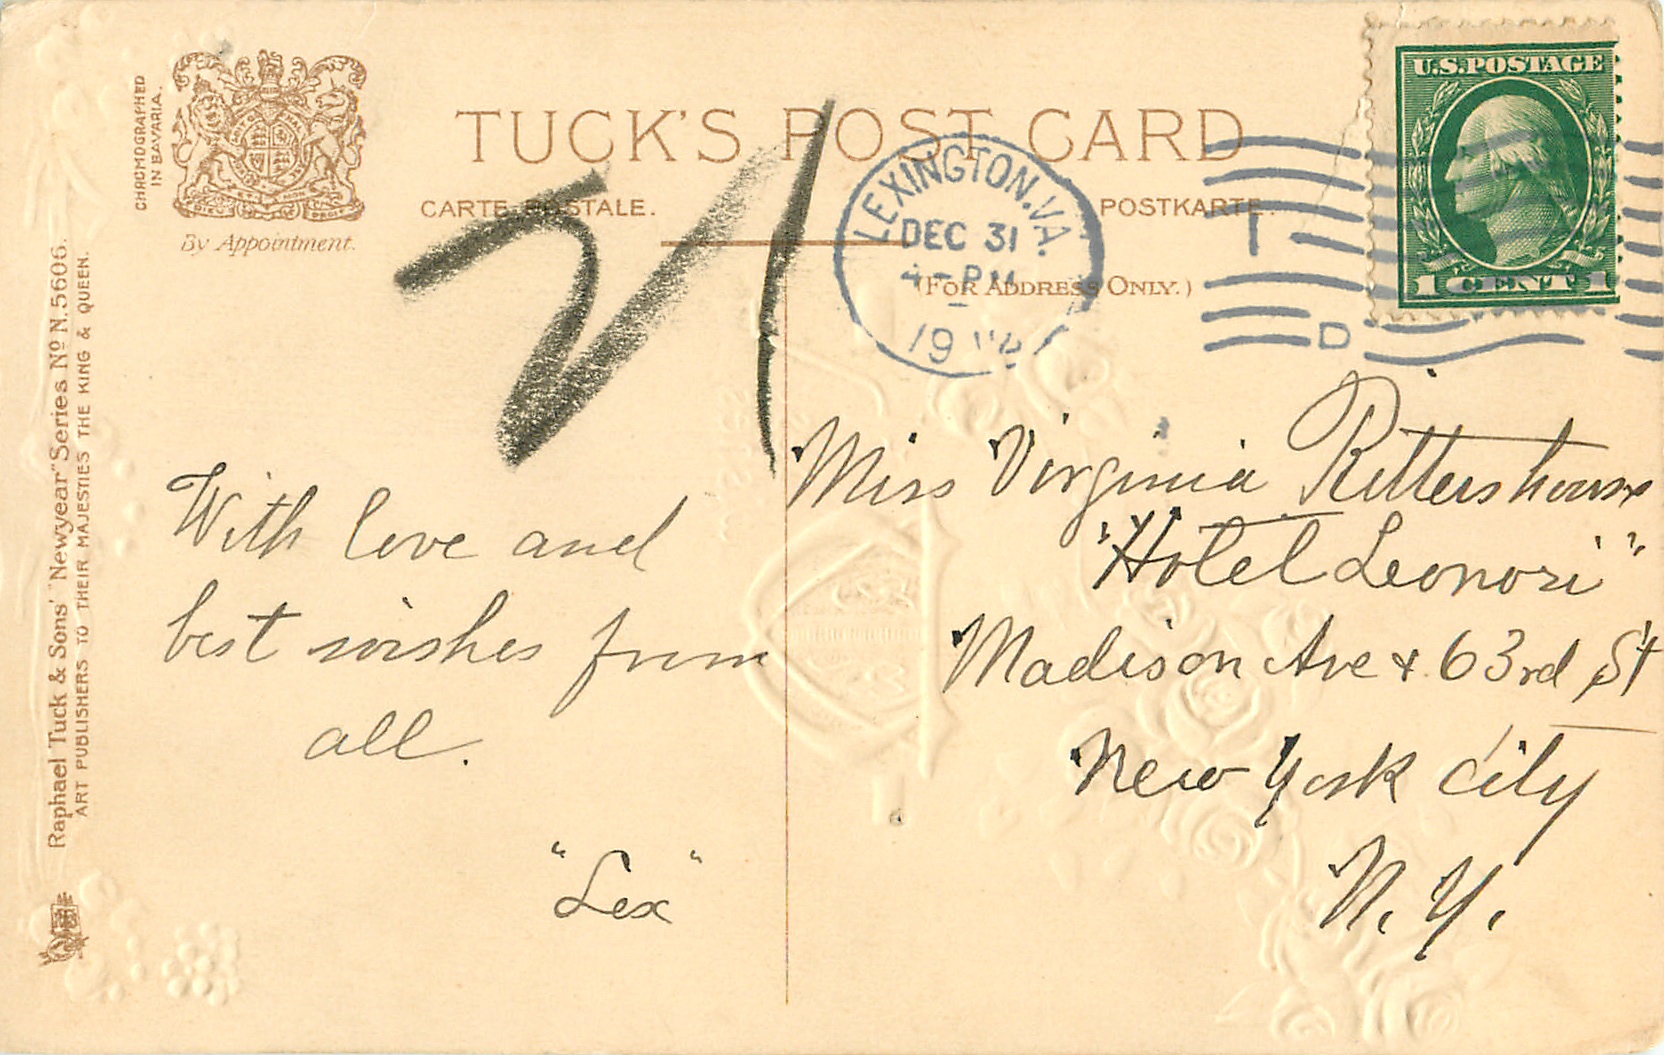 CHROMOGRAPHED
IN BAVARIA.
By Appointment.
TUCK'S POST CARD
CARTE POSTALE.
POSTKARTE.
(FOR ADDRESS ONLY.)
LEXINGTON, VA.
DEC 31
4-PM
19
D
U.S. POSTAGE
1 CENT 1
21
Raphael Tuck & Sons' "Newyear" Series No N. 5606.
ART PUBLISHERS TO THEIR MAJESTIES THE KING & QUEEN.
With love and
best wishes from
all.
"Lex"
Miss Virginia Rittershouse
"Hotel Leonori"
Madison Ave & 63rd St
New York City
N. Y.